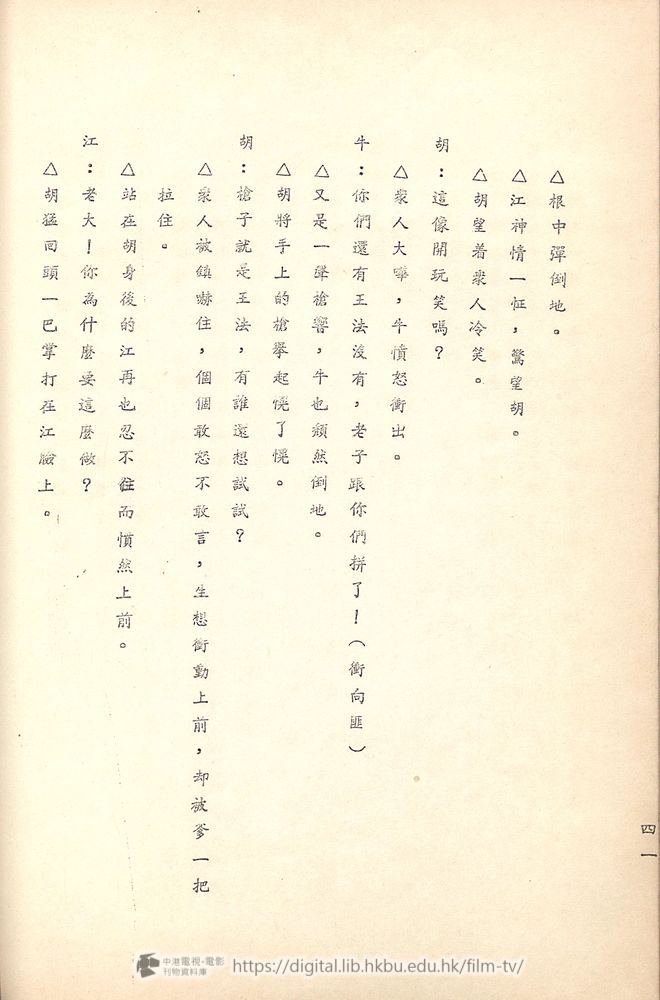 △根中彈倒地。
△江神情一怔，驚望胡。
△胡望着衆人冷笑。
胡：這像開玩笑嗎？
△衆人大嘩，牛憤怒衝出。
牛：你們還有王法沒有，老子跟你們拼了！（衝向匪）
△又是一聲槍響，牛也頹然倒地。
△胡將手上的槍擧起愰了愰。
胡：槍子就是王法，有誰還想試試？
△衆人被鎮嚇住，個個敢怒不敢言，生想衝動上前，却被爹一把
拉住。
△站在胡身後的江再也忍不住而憤然上前。
江：老大！你為什麼要這麼做？
△胡猛囘頭一巴掌打在江臉上。
四一
中港電視·電影
刊物資料庫
https://digital.lib.hkbu.edu.hk/film-tv/